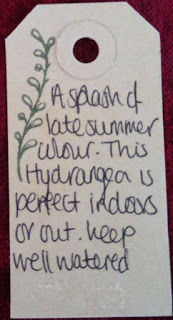 A splash of
late summer
colour. This
Hydrangea is
perfect indoors
or out. Keep
well watered